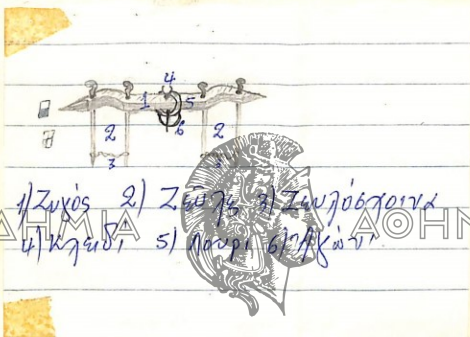 4
1 5
2 6 2
3 3
1) Ζυγός 2) Ζεύλες 3) Ζευλόσχοινα
4) Κλειδί 5) Λουρί 6)
ΔΗΜΙΑ ΑΘΗΝ